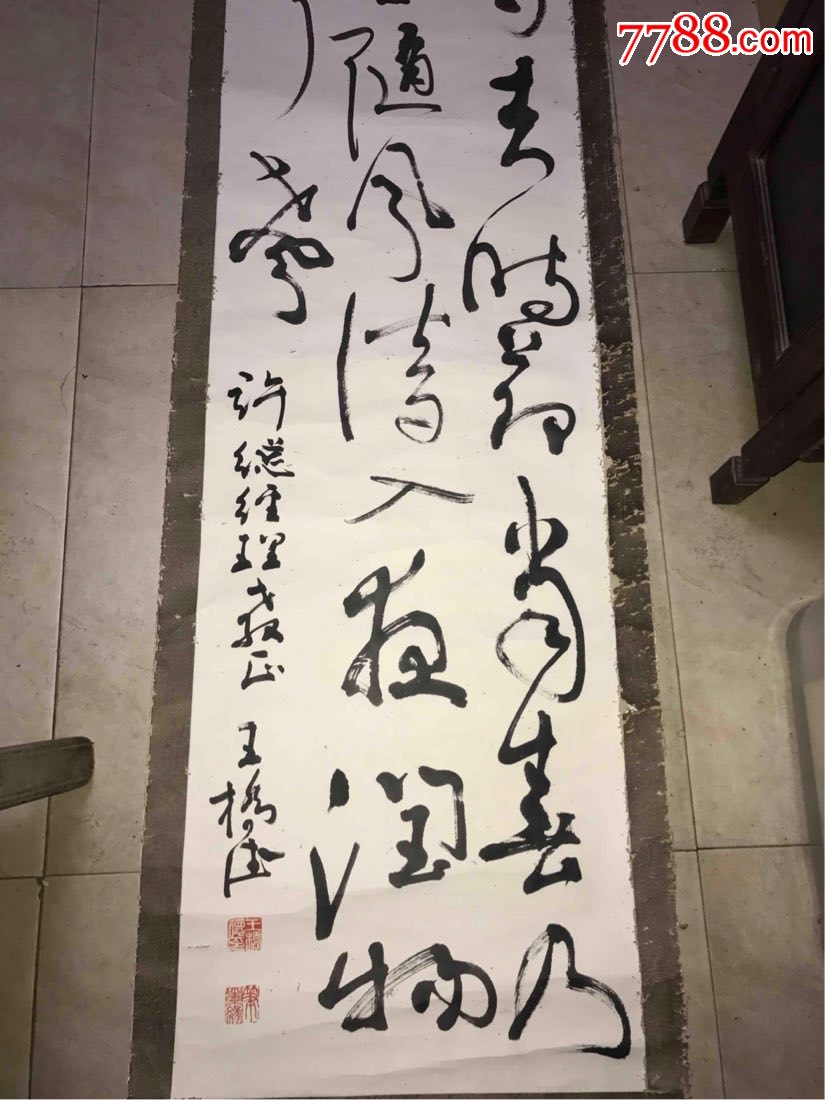 7788.com
知時節當春乃
隨風潛入夜潤物
聲
許總經理教正
王橋德